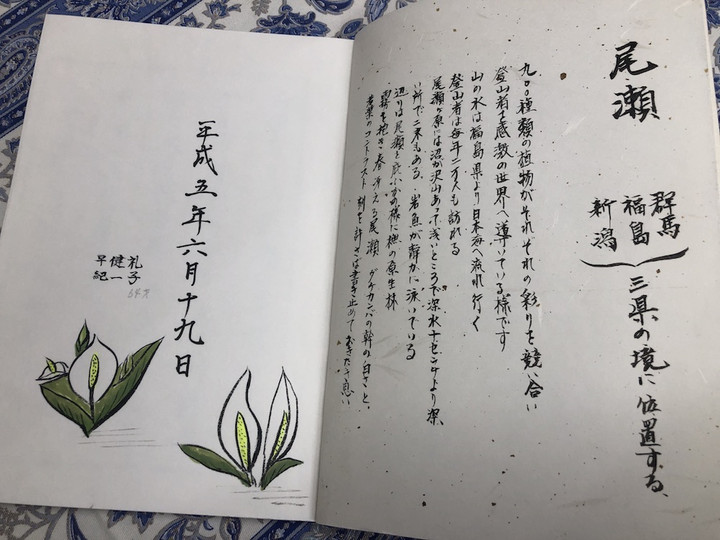 尾瀬
群馬
福島
新潟
三県の境に位置する、
九〇〇種類の植物がそれぞれの彩りを競い合い
登山者を感激の世界へ導いている様です
山の水は福島県より日本海へ流れ行く
登山者は毎年二万人も訪れる
尾瀬ヶ原には沼が沢山あって浅いところで深水十センチより深
い所で二米もある、岩魚が静かに泳いでいる
辺りは尾瀬を庇ふかの様に橅の原生林
霧を抱き春冴える尾瀬 ダケカンバの幹の白さと、
若葉のコントラスト 刻を許さば書き止めておきたき思い
平成五年六月十九日
礼子
健一
早紀